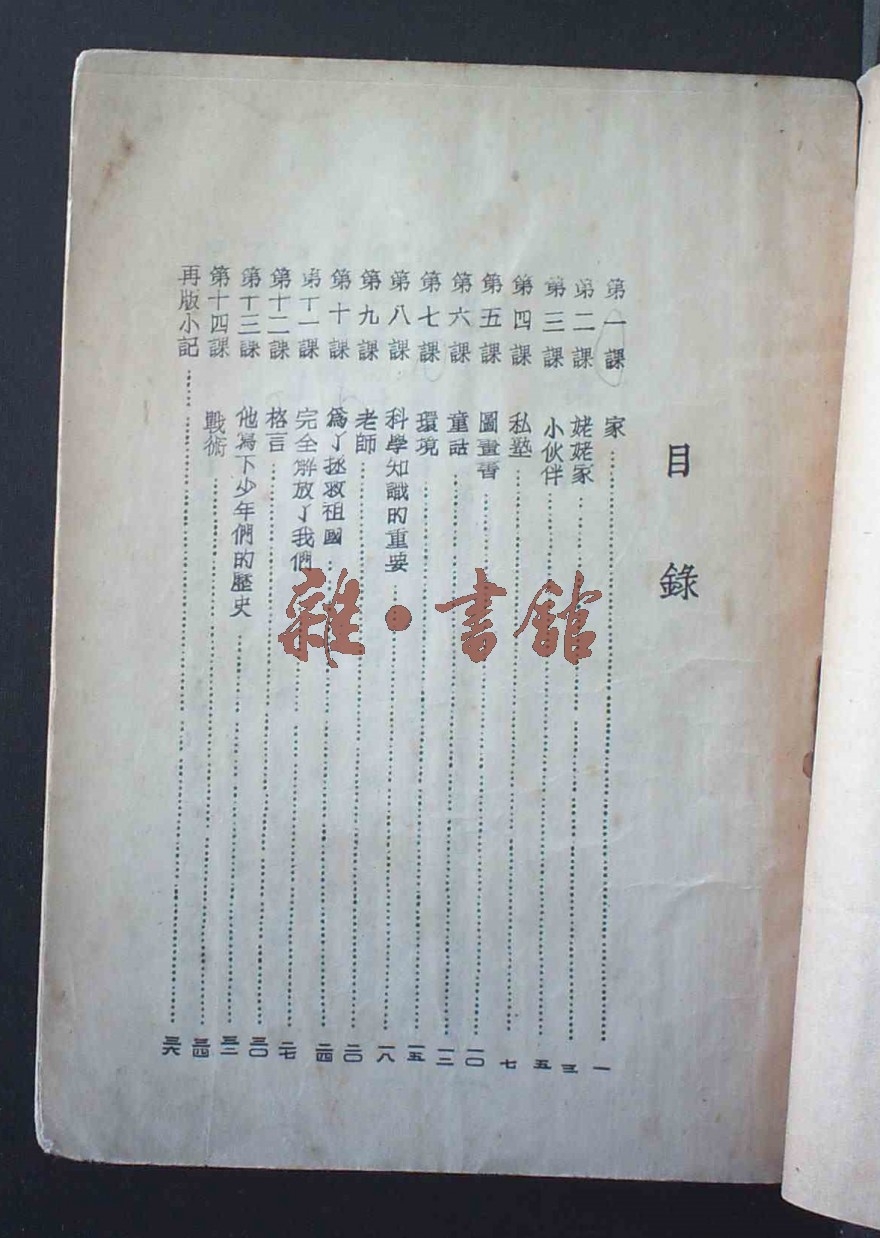 目錄
第一課 家……一
第二課 姥姥家……三
第三課 小伙伴……五
第四課 私塾……七
第五課 圖畫書……一〇
第六課 童話……一二
第七課 環境……一五
第八課 科學知識的重要……一八
第九課 老師……二〇
第十課 爲了拯救祖國……二四
第十一課 完全解放了我們……二七
第十二課 格言……三〇
第十三課 他寫下少年們的歷史……三二
第十四課 戰術……三四
再版小記……三六
雜·書館